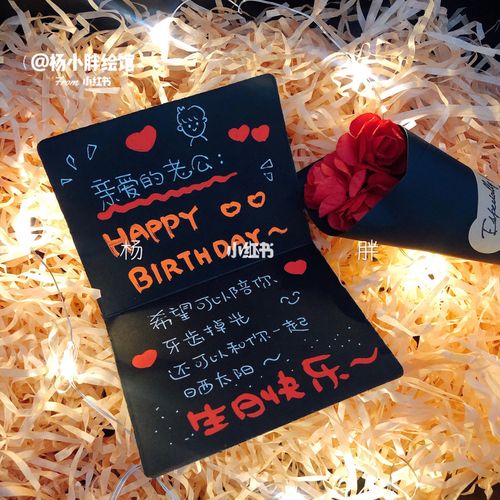 @杨小胖绘馆
From 小红书
亲爱的老公：
HAPPY
BIRTHDAY~
杨 小红书 胖
希望可以陪你
牙齿掉光
还可以和你一起
晒太阳~
生日快乐~